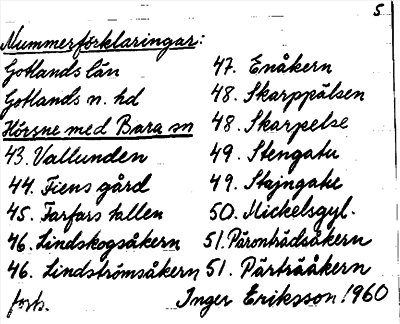 5
Nummerförklaringar:
Gotlands län
Gotlands n. hd
Hörsne med Bara sn
43. Vallunden
44. Fiens gård
45. Farfars tallen
46. Lindskogsåkern
46. Lindströmsåkern
forts.
47. Enåkern
48. Skarppälsen
48. Skarpelse
49. Stengatu
49. Stajngatu
50. Mickelsgyl.
51. Päronträdsåkern
51. Pärträåkern
Inger Eriksson 1960